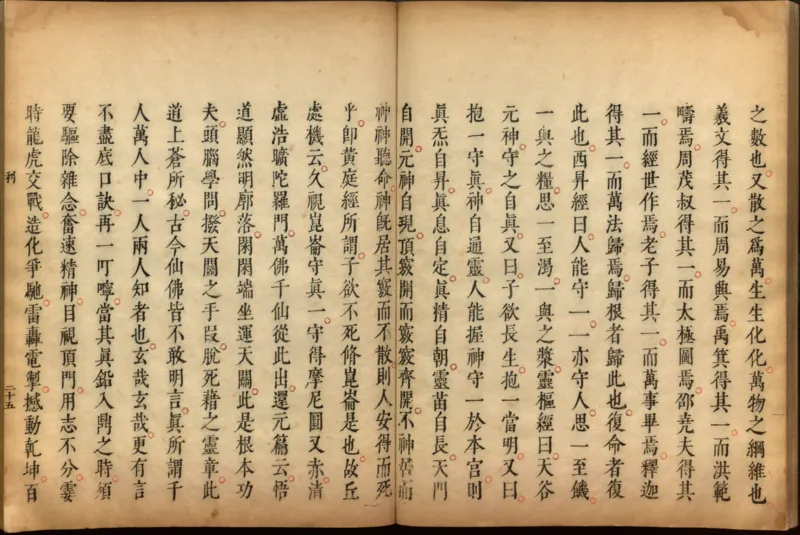 之數也又散之爲萬生生化化萬物之綱維也
羲文得其一而周易興焉禹箕得其一而洪範
疇焉周茂叔得其一而太極圖焉邵堯夫得其
一而經世作焉老子得其一而萬事畢焉釋迦
得其一而萬法歸焉歸根者歸此也復命者復
此也西昇經曰人能守一一亦守人思一至饑
一與之糧思一至渴一與之漿靈樞經曰天谷
元神守之自眞又曰子欲長生抱一當明又曰
抱一守眞神自通靈人能握神守一於本宮則
眞炁自昇眞息自定眞精自朝靈苗自長天門
自開元神自現頂竅開而竅竅齊開不神居而
神神聽命神旣居其竅而不散則人安得而死
乎卽黄庭經所謂子欲不死修崑崙是也故丘
處機云久視崑崙守眞一守得摩尼圓又赤清
虛浩曠陀羅門萬佛千仙從此出還元篇云悟
道顯然明廓落閑閑端坐運天關此是根本功
夫頭腦學問撥天關之手段脫死藉之靈章此
道上蒼所秘古今仙佛皆不敢明言眞所謂千
人萬人中一人兩人知者也玄哉玄哉更有言
不盡底口訣再一叮嚀當其眞鉛入鼎之時須
要驅除雜念奮速精神目視頂門用志不分霎
時龍虎交戰造化爭馳雷轟電掣撼動乾坤百
利
二十五